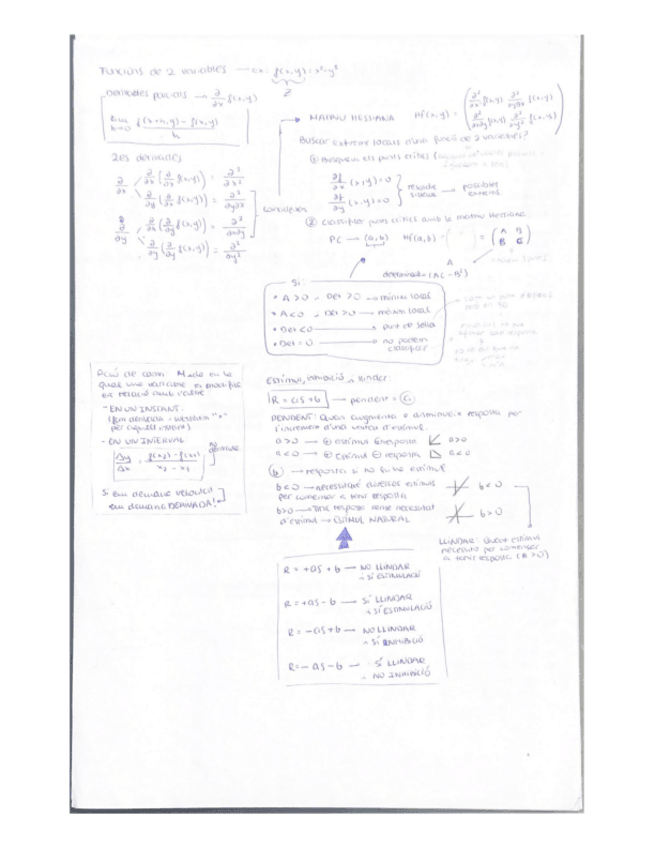 Funcions de 2 variables — ex: f(x,y) = x²-y²
z
derivades parcials → ∂/∂x f(x,y)
lim h→0 f(x+h,y) - f(x,y) / h
2es derivades
∂/∂x ∂/∂x (∂/∂x f(x,y)) = ∂²/∂x²
∂/∂y (∂/∂x f(x,y)) = ∂²/∂y∂x
∂/∂y ∂/∂x (∂/∂y f(x,y)) = ∂²/∂x∂y
∂/∂y (∂/∂y f(x,y)) = ∂²/∂y²
MATRIU HESSIANA Hf(x,y) = (∂²/∂x² f(x,y) ∂²/∂y∂x f(x,y)
∂²/∂x∂y f(x,y) ∂²/∂y² f(x,y))
Buscar extrems locals d'una funció de 2 variables?
① Busquem els punts crítics
∂f/∂x (x,y)=0
∂f/∂y (x,y)=0
resoldre sistema → possibles extrems
② Classificar punts crítics amb la matriu Hessiana
PC — (a,b) Hf(a,b) = ( ) = (A B
B C)
determinant (AC - B²)
Si:
• A > 0, Det > 0 → mínim local
• A < 0, Det > 0 → màxim local
• Det < 0 → punt de sella
• Det = 0 → no podem classificar
Raó de canvi: Mode en la
qual una variable es modifica
en relació amb l'altre
- EN UN INSTANT:
(fem derivada
per aquell instant)
- EN UN INTERVAL
Δy/Δx = f(x2) - f(x1) / x2 - x1
no derivade
Si em demane velocitat
em demane DERIVADA!
Estímul, inhibició, llindar:
R = aS + b → pendent = a
PENDENT: Quan augmenta o disminueix resposta per
l'increment d'una unitat d'estímul.
a>0 → ⊕ estímul ⊕ resposta a>0
a<0 → ⊕ estímul ⊖ resposta a<0
b → resposta si no hi ha estímul
b<0 → necessitaré diversos estímuls
per començar a tenir resposta
b<0
b>0 → Tinc resposta sense necessitat
d'estímul → ESTÍMUL NATURAL
b>0
LLINDAR: Quant estímul
necessito per començar
a tenir resposta (R>0)
R = +aS + b — NO LLINDAR
, SÍ ESTIMULACIÓ
R = +aS - b — SÍ LLINDAR
, SÍ ESTIMULACIÓ
R = -aS + b — NO LLINDAR
, SÍ INHIBICIÓ
R = -aS - b — SÍ LLINDAR
, NO INHIBICIÓ